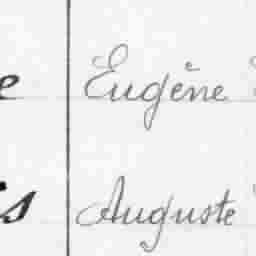 e Eugène
is Auguste